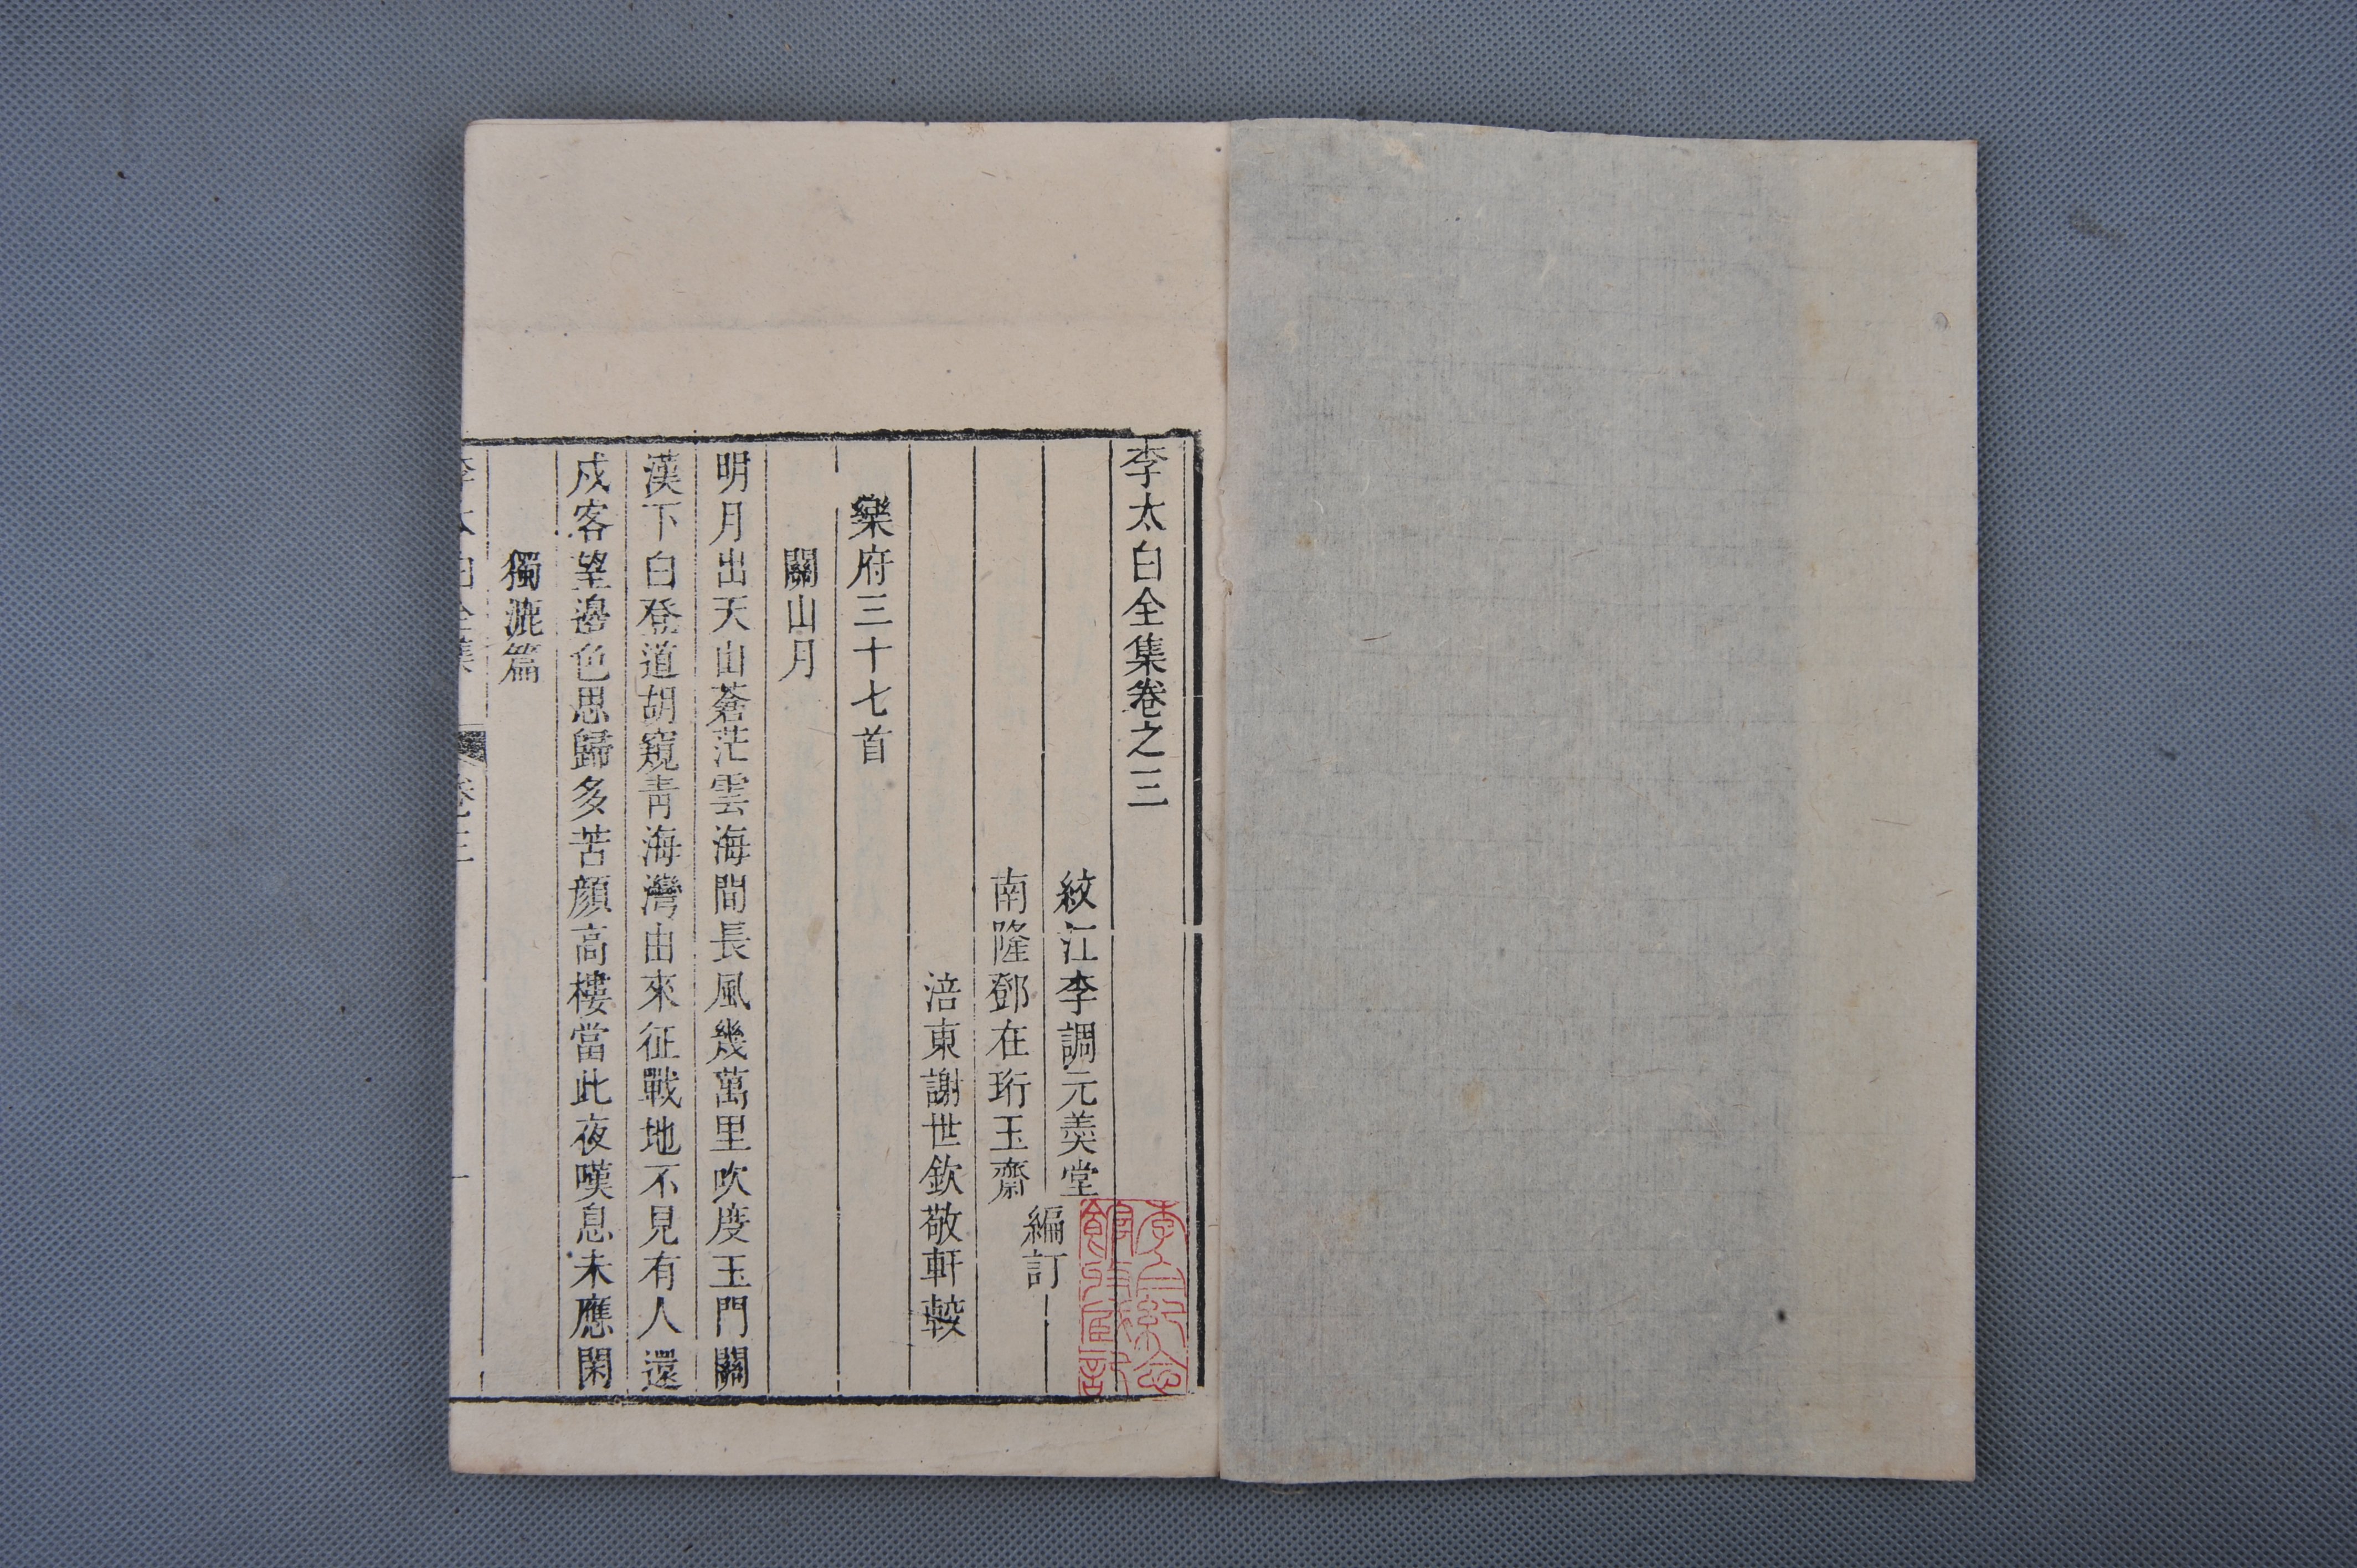 李太白全集卷之三
紋江李調元羹堂
南隆鄧在珩玉齋
編訂
涪東謝世欽敬軒較
樂府三十七首
關山月
明月出天山蒼茫雲海間長風幾萬里吹度玉門關
漢下白登道胡窺青海灣由來征戰地不見有人還
戍客望邊色思歸多苦顏高樓當此夜嘆息未應閑
獨漉篇
李太白全集 卷三 一
李白紀念館收藏印記